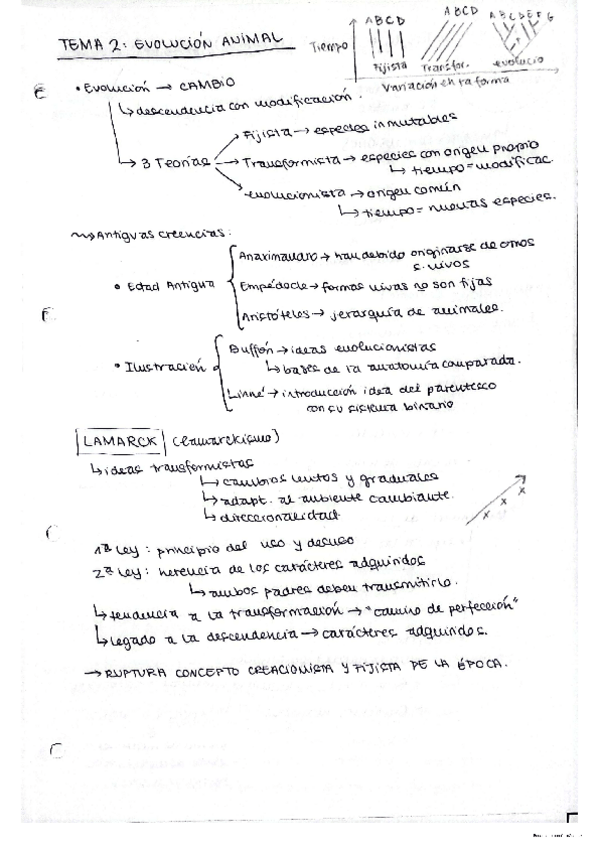 TEMA 2: EVOLUCIÓN ANIMAL
Tiempo
ABCD
ABCD
ABCDEFG
Fijista
Transfor.
evolucio
Variación en la forma
• Evolución → CAMBIO
↳ descendencia con modificación.
↳ 3 Teorías
Fijista → especies inmutables
Transformista → especies con origen propio
↳ tiempo = modificac.
evolucionista → origen común
↳ tiempo = nuevas especies.
Antiguas creencias:
• Edad Antigua
Anaximandro → han debido originarse de otros
s. vivos
Empédocle → formas vivas no son fijas
Aristóteles → jerarquía de animales.
• Ilustración
Buffón → ideas evolucionistas
↳ bases de la anatomía comparada.
Linné → introducción idea del parentesco
con su sistema binario
LAMARCK (Lamarckismo)
↳ ideas transformistas
↳ cambios lentos y graduales
↳ adapt. al ambiente cambiante.
↳ direccionalidad.
x x x
1ª Ley: principio del uso y desuso
2ª Ley: herencia de los carácteres adquiridos
↳ ambos padres deben transmitirlo.
↳ tendencia a la transformación → "camino de perfección"
↳ legado a la descendencia → carácteres adquiridos.
→ RUPTURA CONCEPTO CREACIONISTA Y FIJISTA DE LA ÉPOCA.